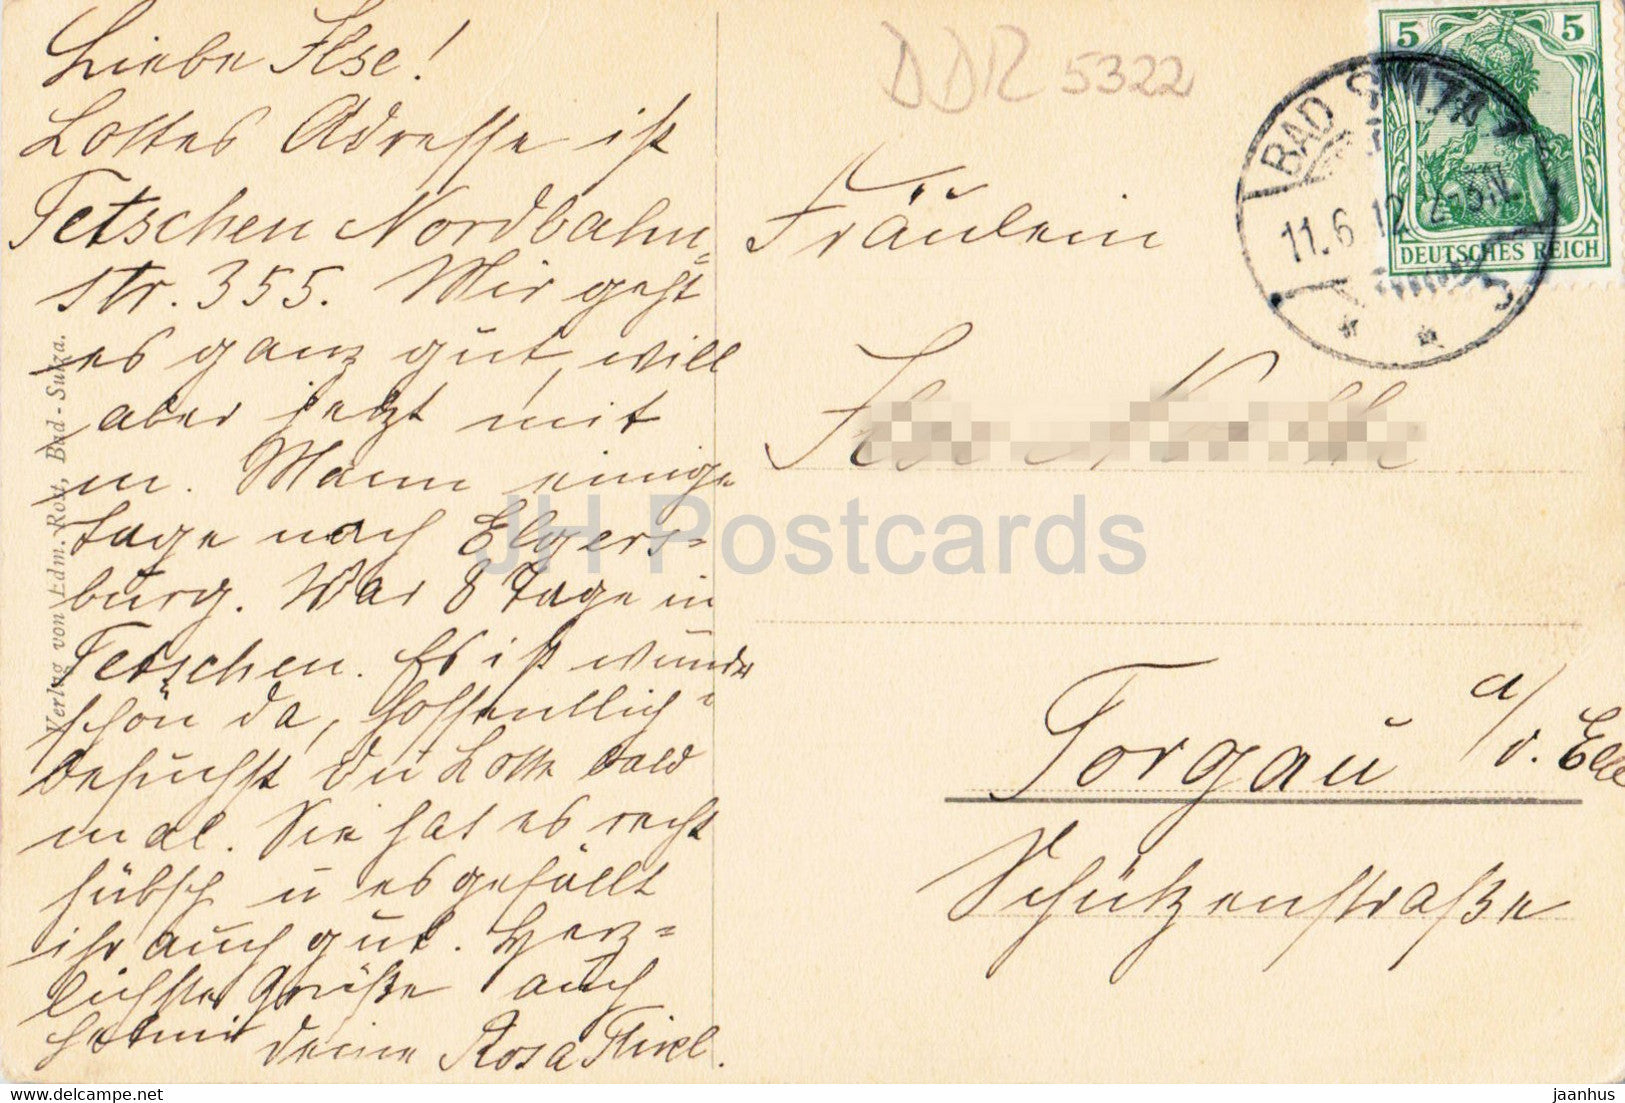 Liebe Ilse!
Lottes Adresse ist
Tetschen Nordbahn-
str. 355. Mir geht
es ganz gut, will
aber jetzt mit
m. Mann einige
Tage nach Elgers-
burg. War 8 Tage in
Tetschen. Es ist wunder
schön da, hoffentlich
besuchst du Lotte bald
mal. Sie hat es recht
hübsch u es gefällt
ihr auch gut. Herz-
lichste Grüße auch
deine Rosa
Verlag von Edm. Rost, Bad-Sulza.
DDR 5322
5 5
DEUTSCHES REICH
BAD SULZA
11.6.12
Fräulein
Ilse
Torgau a/d. Elbe
Schützenstraße
JH Postcards
https://www.delcampe.net
jaanhus